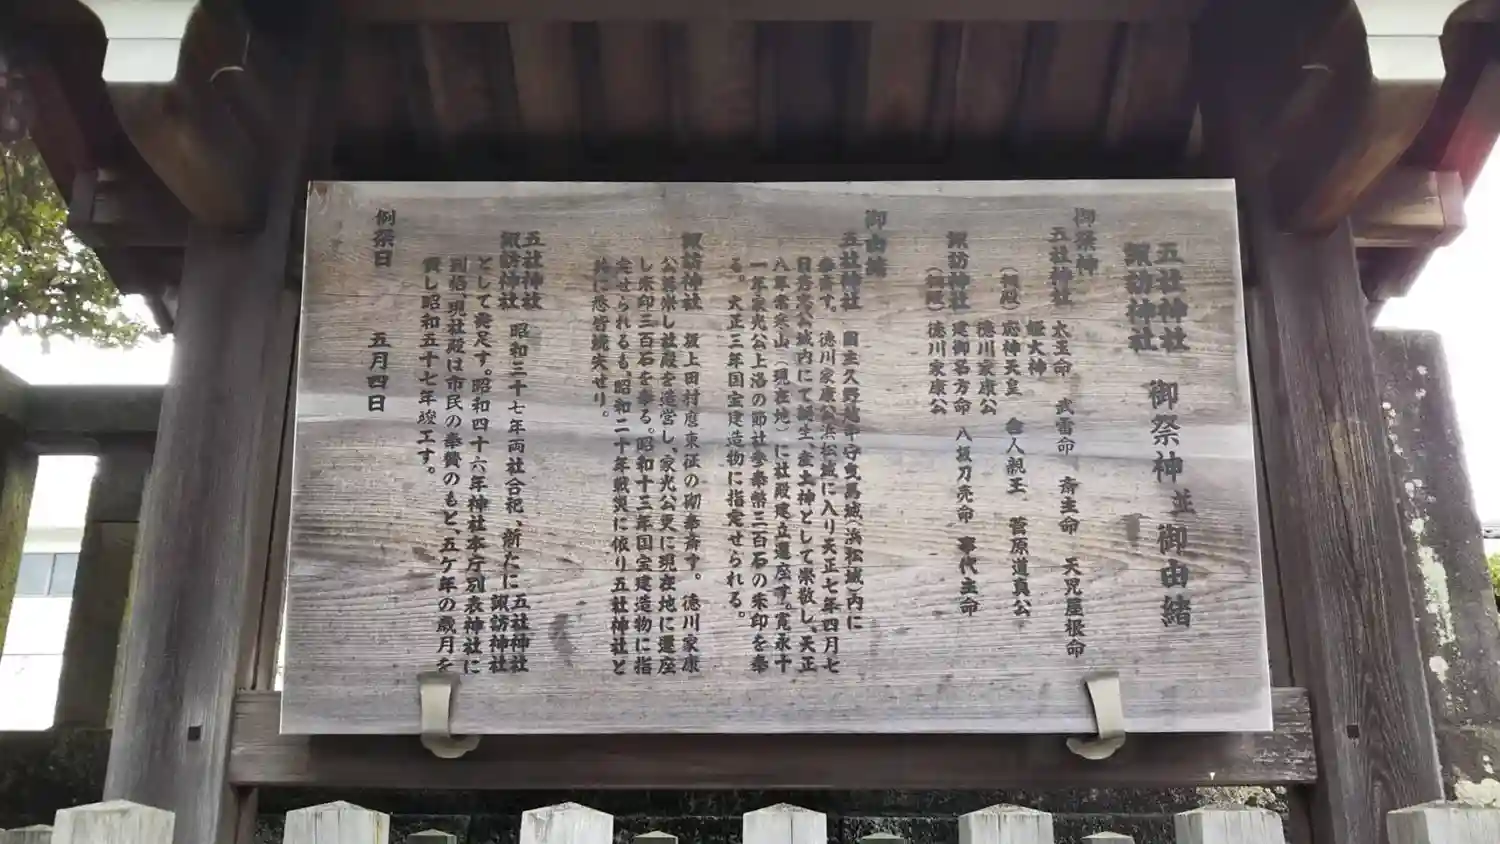 五社神社
諏訪神社
御祭神並御由緒
御祭神
五社神社 太玉命 武雷命 斎主命 天児屋根命
姫大神
(相殿) 応神天皇 舎人親王、菅原道真公
徳川家康公
諏訪神社 建御名方命 八坂刀売命 事代主命
(相殿) 徳川家康公
御由緒
五社神社 国主久野越中守曳馬城(浜松城)内に
奉斎す。徳川家康公浜松城に入り天正七年四月七
日秀忠公城内にて誕生、産土神として崇敬し、天正
八年常寒山(現在地)に社殿建立遷座す。寛永十
一年家光公上洛の節社参奉幣三百石の朱印を奉
る。大正三年国宝建造物に指定せられる。
諏訪神社 坂上田村麿東征の砌奉斎す。徳川家康
公篤崇し社殿を造営し、家光公更に現在地に遷座
し朱印三百石を奉る。昭和十三年国宝建造物に指
定せられるも、昭和二十年戦災に依り五社神社と
共に悉皆焼失せり。
五社神社
諏訪神社 昭和三十七年両社合祀、新たに五社神社
諏訪神社
として発足す。昭和四十六年神社本庁別表神社に
列格、現社殿は市民の奉賛のもと、五ケ年の歳月を
費し昭和五十七年竣工す。
例祭日 五月四日